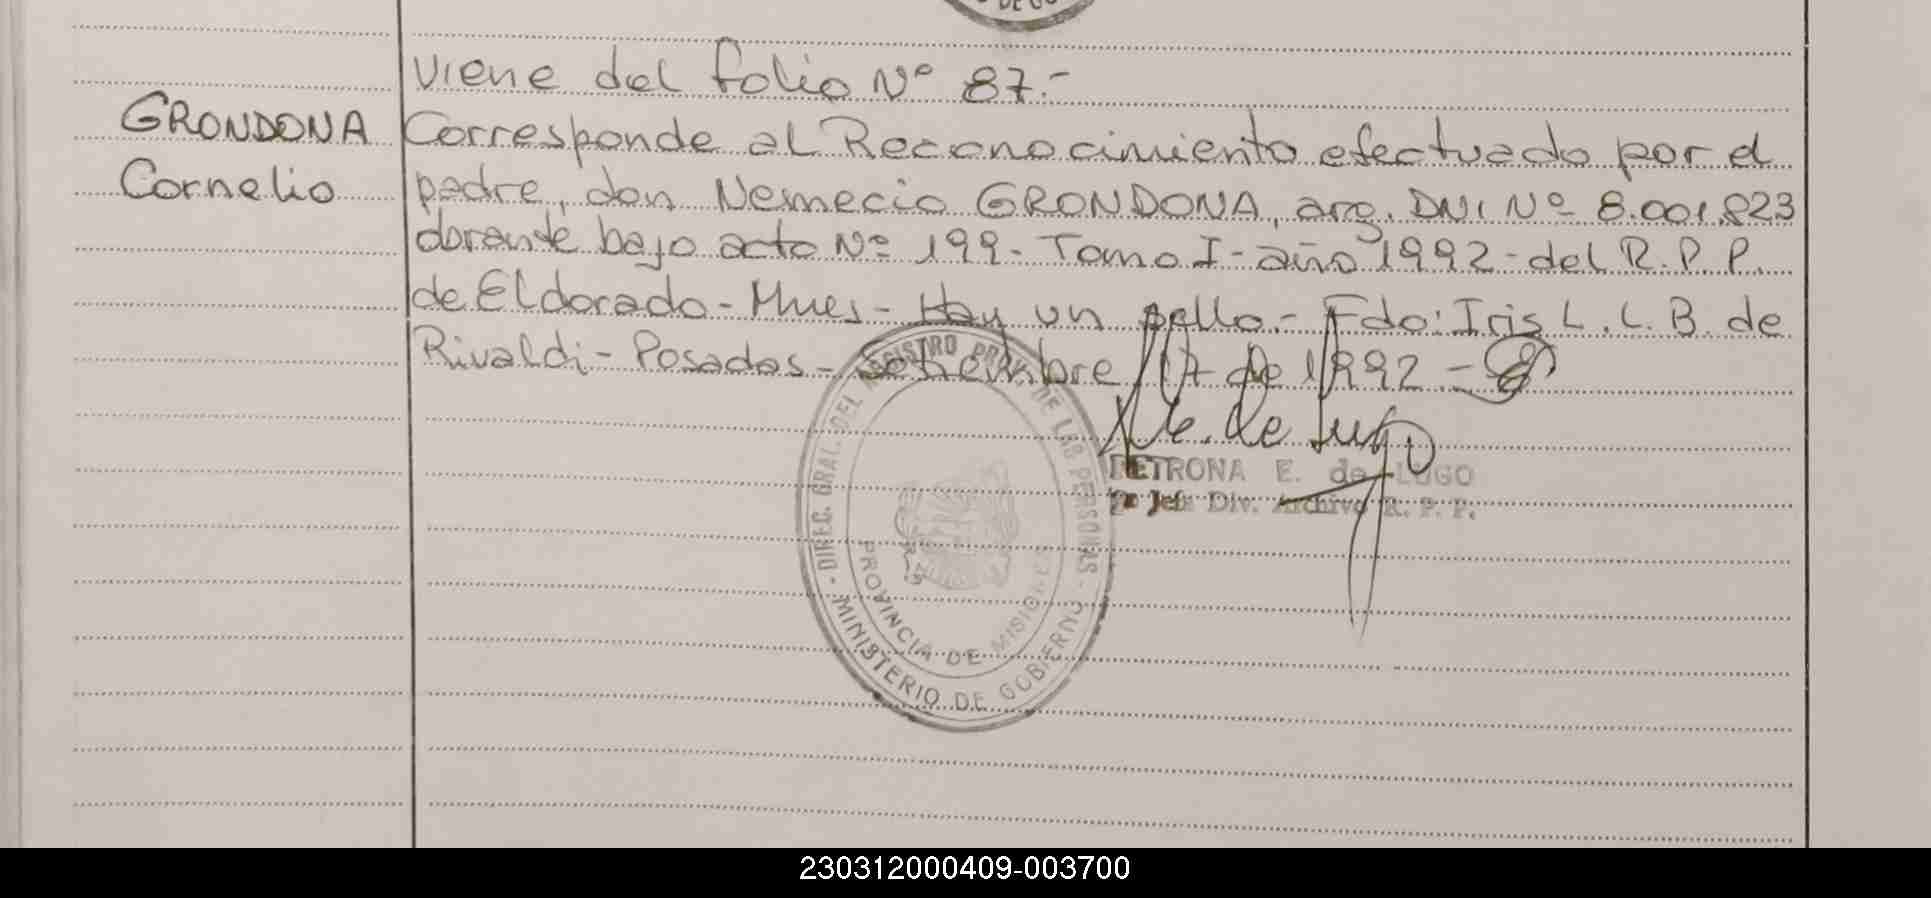 DE GO
viene del folio Nº 87.-
GRONDONA Corresponde al Reconocimiento efectuado por el
Cornelio padre, don Nemecio GRONDONA, arg. DNI Nº 8.001.823
bajo acta Nº 199- Tomo I- año 1992- del R.P.P.
de Eldorado- Mnes- Hay un sello.- Fdo: Iris L. L. B. de
Rivaldi- Posadas- Setiembre 17 de 1992-
E. de Lugo
PETRONA E. de LUGO
2a Jefa Div. Archivo R. P. P.
- DIREC. GRAL. DEL REGISTRO PROV. DE LAS PERSONAS -
PROVINCIA DE MISIONES
MINISTERIO DE GOBIERNO
230312000409-003700